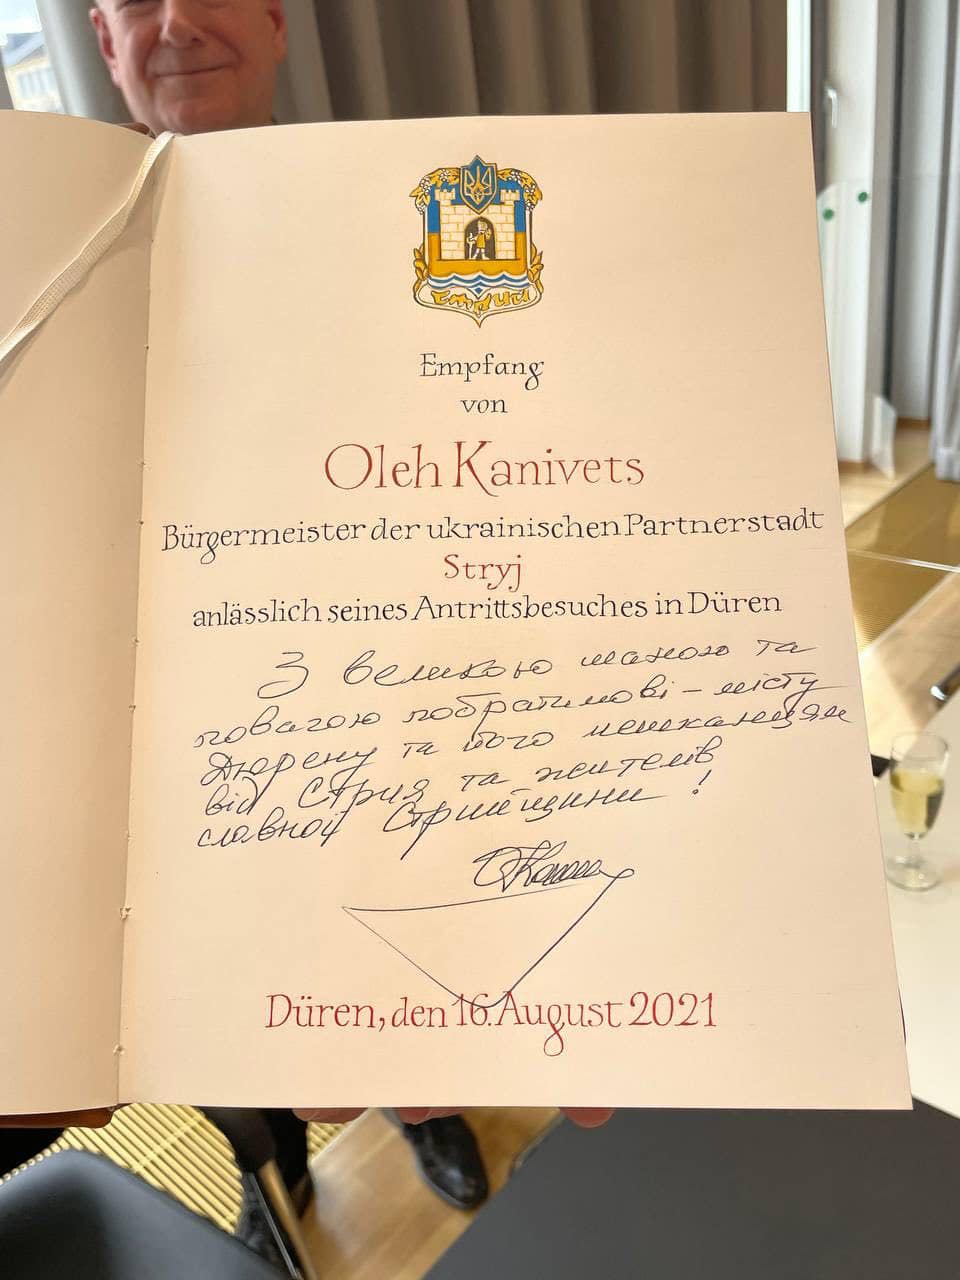 Стрий
Empfang
von
Oleh Kanivets
Bürgermeister der ukrainischen Partnerstadt
Stryj
anlässlich seines Antrittsbesuches in Düren
З великою шаною та
повагою побратимові - місту
Дюрену та його мешканцям
від Стрия та жителів
славної Стрийщини!
Düren, den 16. August 2021